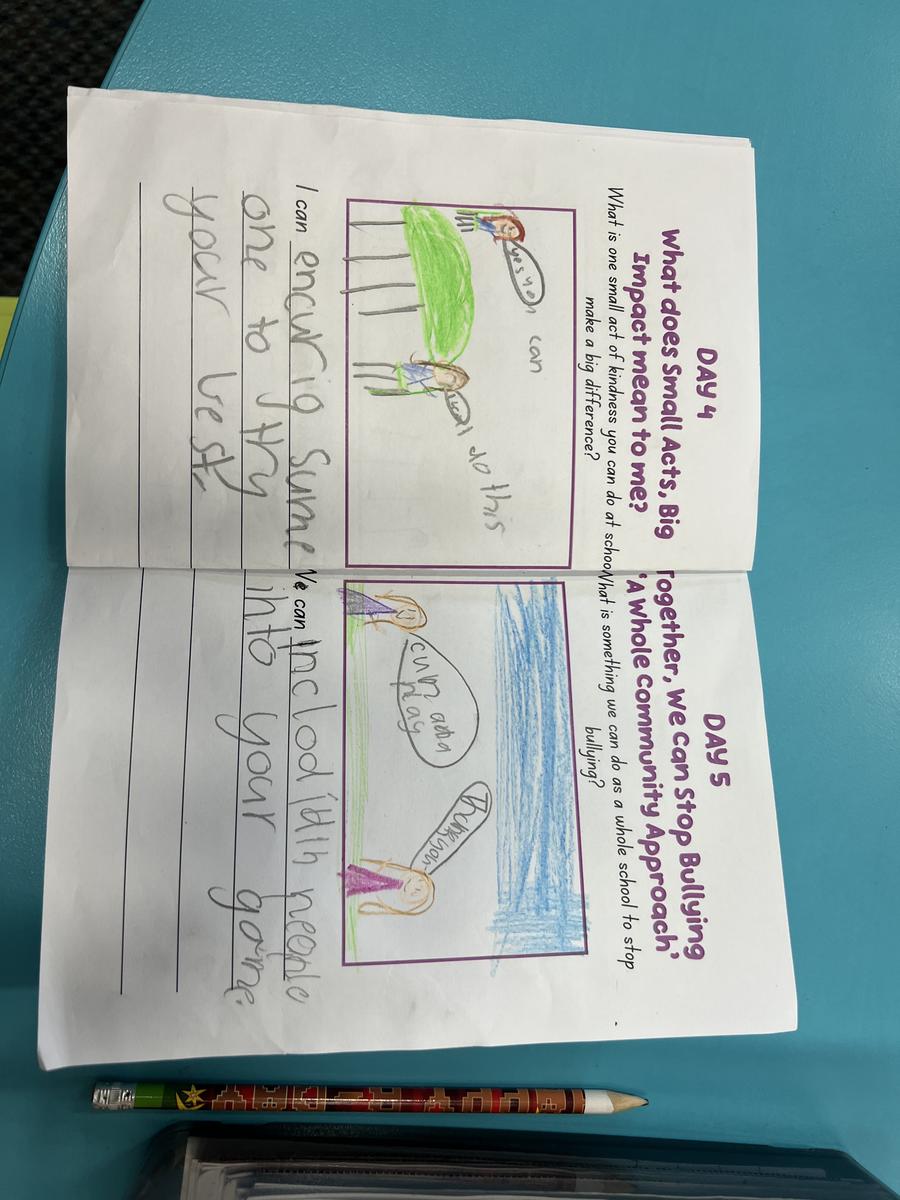 DAY 4
What does Small Acts, Big
Impact mean to me?
What is one small act of kindness you can do at school
make a big difference?
yes you can
do this
I can encurig sume
one to try
your best
DAY 5
Together, We can Stop Bullying
‘A Whole Community Approach’
What is something we can do as a whole school to stop
bullying?
cum and
play
Thank
you
We can people
into your game.